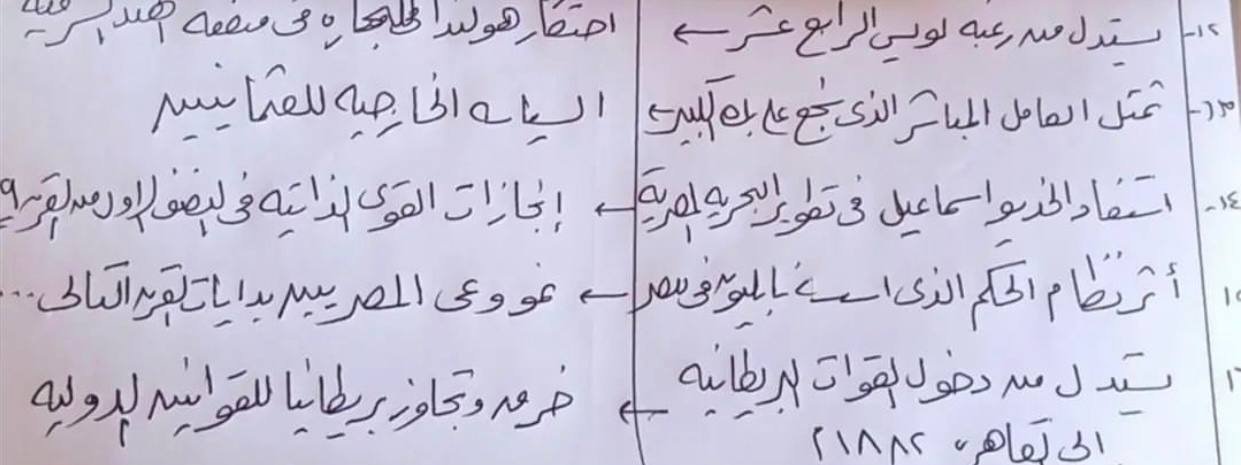 ١٢- يستدل من رغبة لويس الرابع عشر ← احتكار هولندا للتجارة فى منطقة الهند الشرقية
١٣- تمثل العامل المباشر الذى شجع على بك الكبير ← السياسة الخارجية للعثمانيين
١٤- استفاد الخديو اسماعيل فى تطوير البحرية المصرية ← إنجازات القوى الذاتية فى النصف الاول من القرن ١٩
١٥ أثر نظام الحكم الذى اسسه نابليون فى مصر ← نمو وعى المصريين بدايات القرن التالى ...
١٦ يستدل من دخول القوات البريطانية ← خرق وتجاوز بريطانيا للقوانين الدولية
الى القاهرة ١٨٨٢م